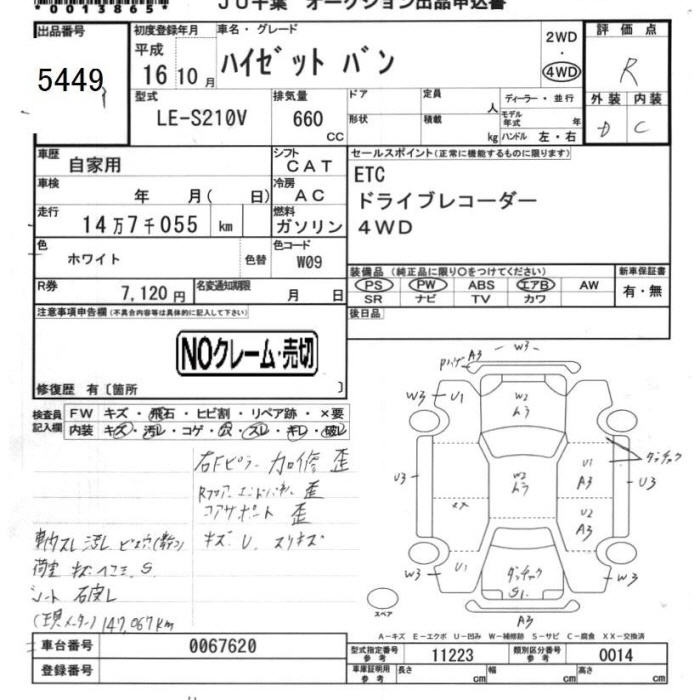 *0013865*
JU千葉 オークション出品申込書
出品番号 5449
初度登録年月 平成 16年10月
車名・グレード ハイゼット バン
2WD・4WD
評価点 R
外装 D 内装 C
型式 LE-S210V
排気量 660 CC
ドア 形状
定員 人
積載 kg
ディーラー・並行
モデル年式 年
ハンドル 左・右
車歴 自家用
シフト CAT
セールスポイント(正常に機能するものに限ります)
ETC
ドライブレコーダー
4WD
車検 年 月( 日)
冷房 AC
走行 14万7千055 km
燃料 ガソリン
色 ホワイト 色替
色コード W09
装備品(純正品に限り○をつけてください)
PS PW ABS エアB AW
SR ナビ TV カワ
新車保証書 有・無
R券 7,120円
名変通知期限 月 日
後日品
注意事項申告欄(不具合内容等は具体的に記入して下さい)
NOクレーム・売切
修復歴 有〔箇所 〕
検査員記入欄
FW キズ・飛石・ヒビ割・リペア跡・×要
内装 キズ・汚レ・コゲ・穴・スレ・キレ・破レ
右Fピラー 加修 歪
コアサポート 歪
キズ U. スリキズ
シート 破レ
(現メーター) 147,067km
Pハゲ A3 W3
W3 U1 W2 トラ W3
タッチアック
U3 W2 トラ U1 A3 U3
U2 A3
W3 U1 S1. W3
A3
スペア
A-キズ E-エクボ U-凹み W-補修跡 S-サビ C-腐食 XX-交換済
車台番号 0067620
型式指定番号 参考 11223
類別区分番号 参考 0014
登録番号
車庫証明用 参考 長さ cm 幅 cm 高さ cm